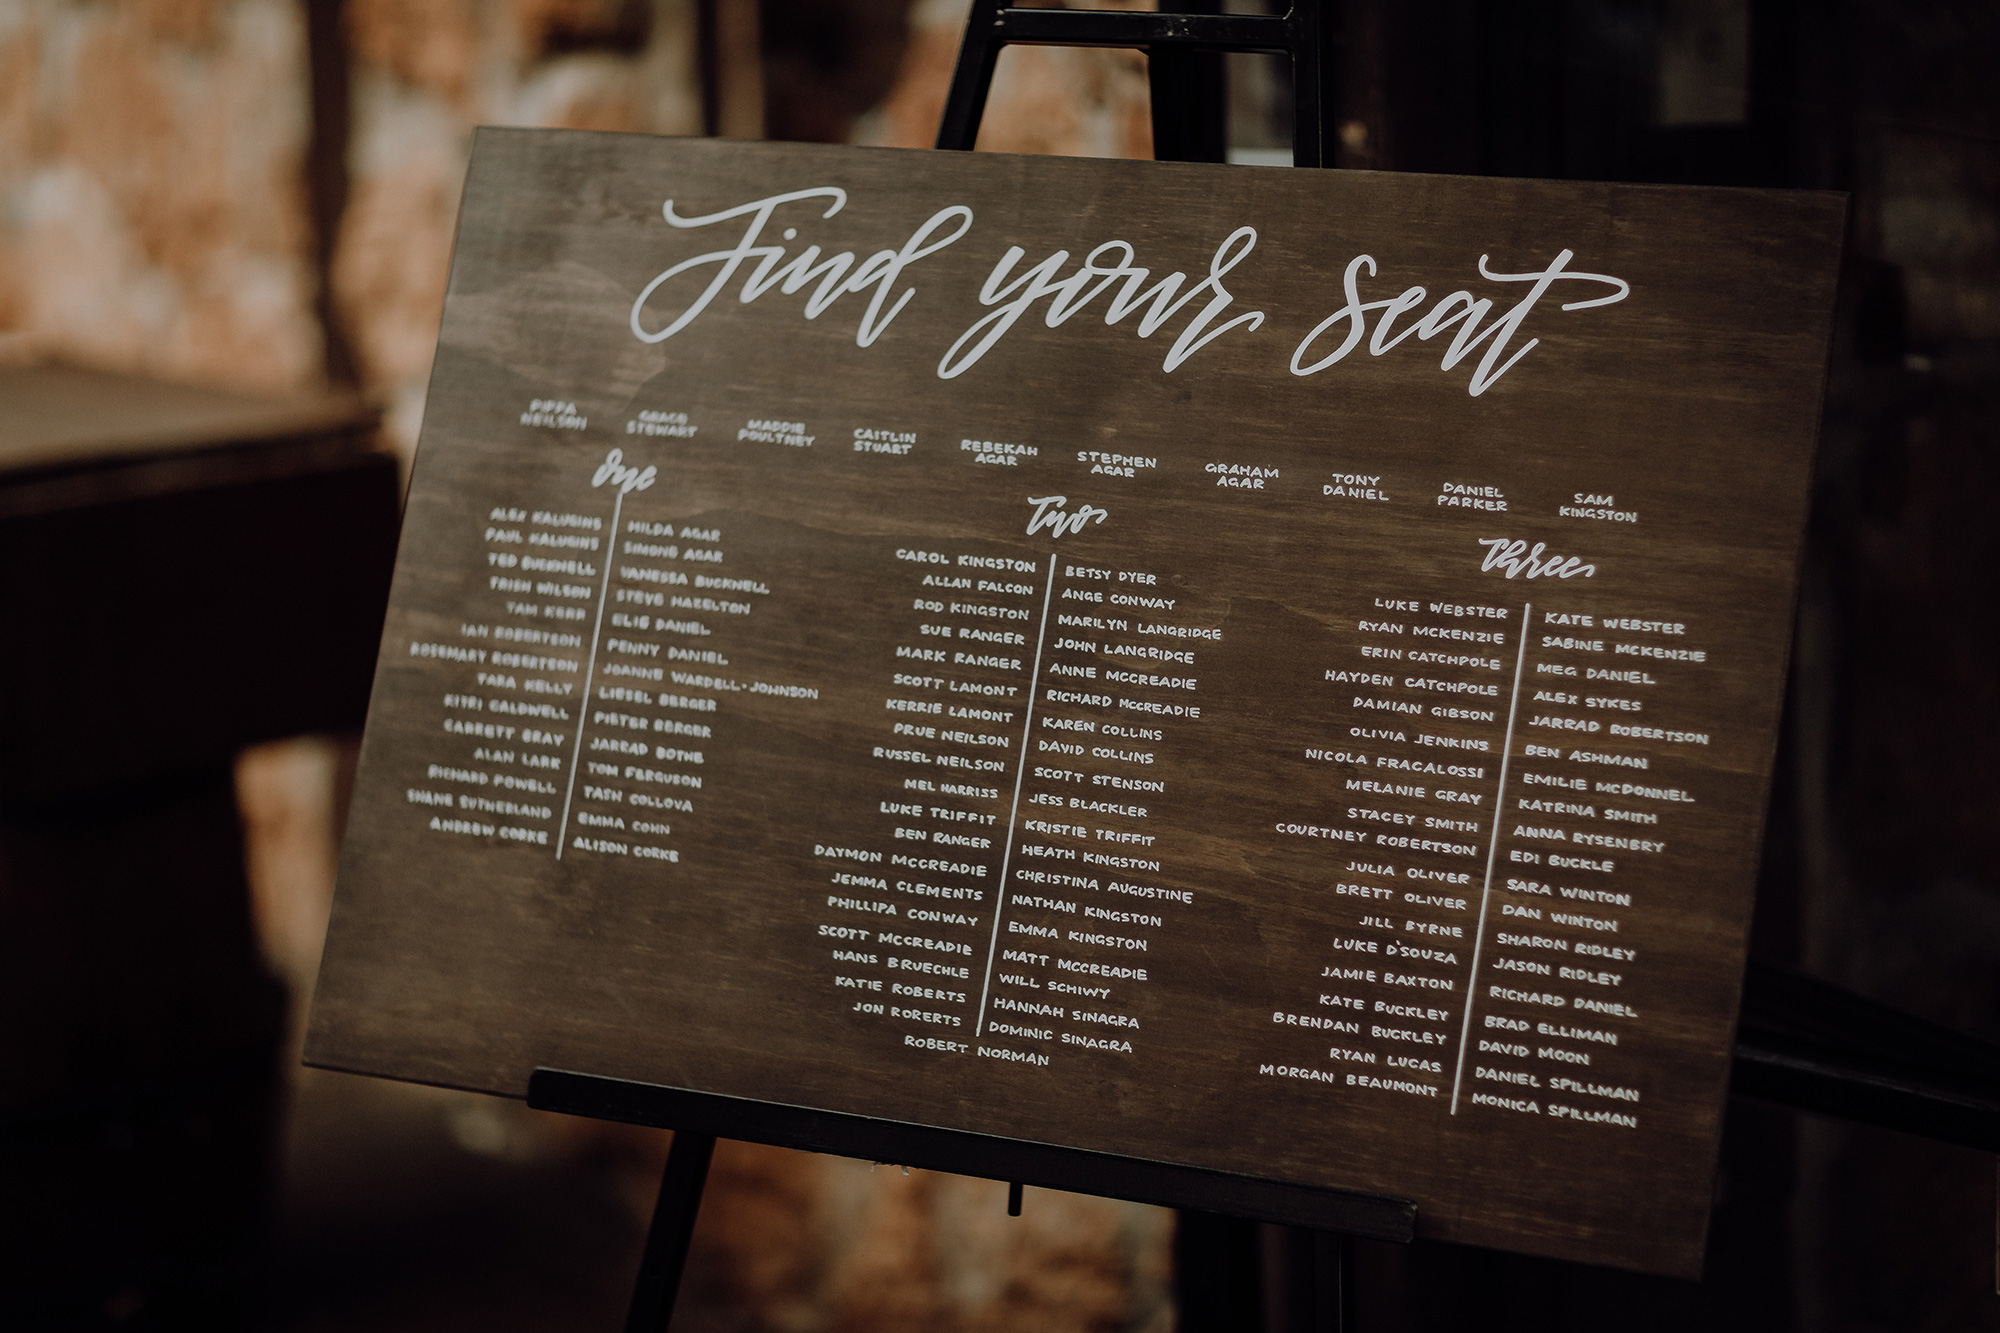 Find your seat
PIPPA NEILSON
GRACE STEWART
MADDIE POULTNEY
CAITLIN STUART
REBEKAH AGAR
STEPHEN AGAR
GRAHAM AGAR
TONY DANIEL
DANIEL PARKER
SAM KINGSTON
one
ALEX KALUGINS
PAUL KALUGINS
TED BUCKNELL
TRISH WILSON
TAM KERR
IAN ROBERTSON
ROSEMARY ROBERTSON
TARA KELLY
KITRI CALDWELL
GARRETT GRAY
ALAN LARK
RICHARD POWELL
SHANE SUTHERLAND
ANDREW CORKE
HILDA AGAR
SIMONE AGAR
VANESSA BUCKNELL
STEVE HAZELTON
ELIE DANIEL
PENNY DANIEL
JOANNE WARDELL-JOHNSON
LIESEL BERGER
PIETER BERGER
JARRAD BOTHE
TOM FERGUSON
TASH COLLOVA
EMMA COHN
ALISON CORKE
Two
CAROL KINGSTON
ALLAN FALCON
ROD KINGSTON
SUE RANGER
MARK RANGER
SCOTT LAMONT
KERRIE LAMONT
PRUE NEILSON
RUSSEL NEILSON
MEL HARRISS
LUKE TRIFFIT
BEN RANGER
DAYMON MCCREADIE
JEMMA CLEMENTS
PHILLIPA CONWAY
SCOTT MCCREADIE
HANS BRUECHLE
KATIE ROBERTS
JON RORERTS
BETSY DYER
ANGE CONWAY
MARILYN LANGRIDGE
JOHN LANGRIDGE
ANNE MCCREADIE
RICHARD MCCREADIE
KAREN COLLINS
DAVID COLLINS
SCOTT STENSON
JESS BLACKLER
KRISTIE TRIFFIT
HEATH KINGSTON
CHRISTINA AUGUSTINE
NATHAN KINGSTON
EMMA KINGSTON
MATT MCCREADIE
WILL SCHIWY
HANNAH SINAGRA
DOMINIC SINAGRA
ROBERT NORMAN
Three
LUKE WEBSTER
RYAN MCKENZIE
ERIN CATCHPOLE
HAYDEN CATCHPOLE
DAMIAN GIBSON
OLIVIA JENKINS
NICOLA FRACALOSSI
MELANIE GRAY
STACEY SMITH
COURTNEY ROBERTSON
JULIA OLIVER
BRETT OLIVER
JILL BYRNE
LUKE D'SOUZA
JAMIE BAXTON
KATE BUCKLEY
BRENDAN BUCKLEY
RYAN LUCAS
MORGAN BEAUMONT
KATE WEBSTER
SABINE MCKENZIE
MEG DANIEL
ALEX SYKES
JARRAD ROBERTSON
BEN ASHMAN
EMILIE MCDONNEL
KATRINA SMITH
ANNA RYSENBRY
EDI BUCKLE
SARA WINTON
DAN WINTON
SHARON RIDLEY
JASON RIDLEY
RICHARD DANIEL
BRAD ELLIMAN
DAVID MOON
DANIEL SPILLMAN
MONICA SPILLMAN